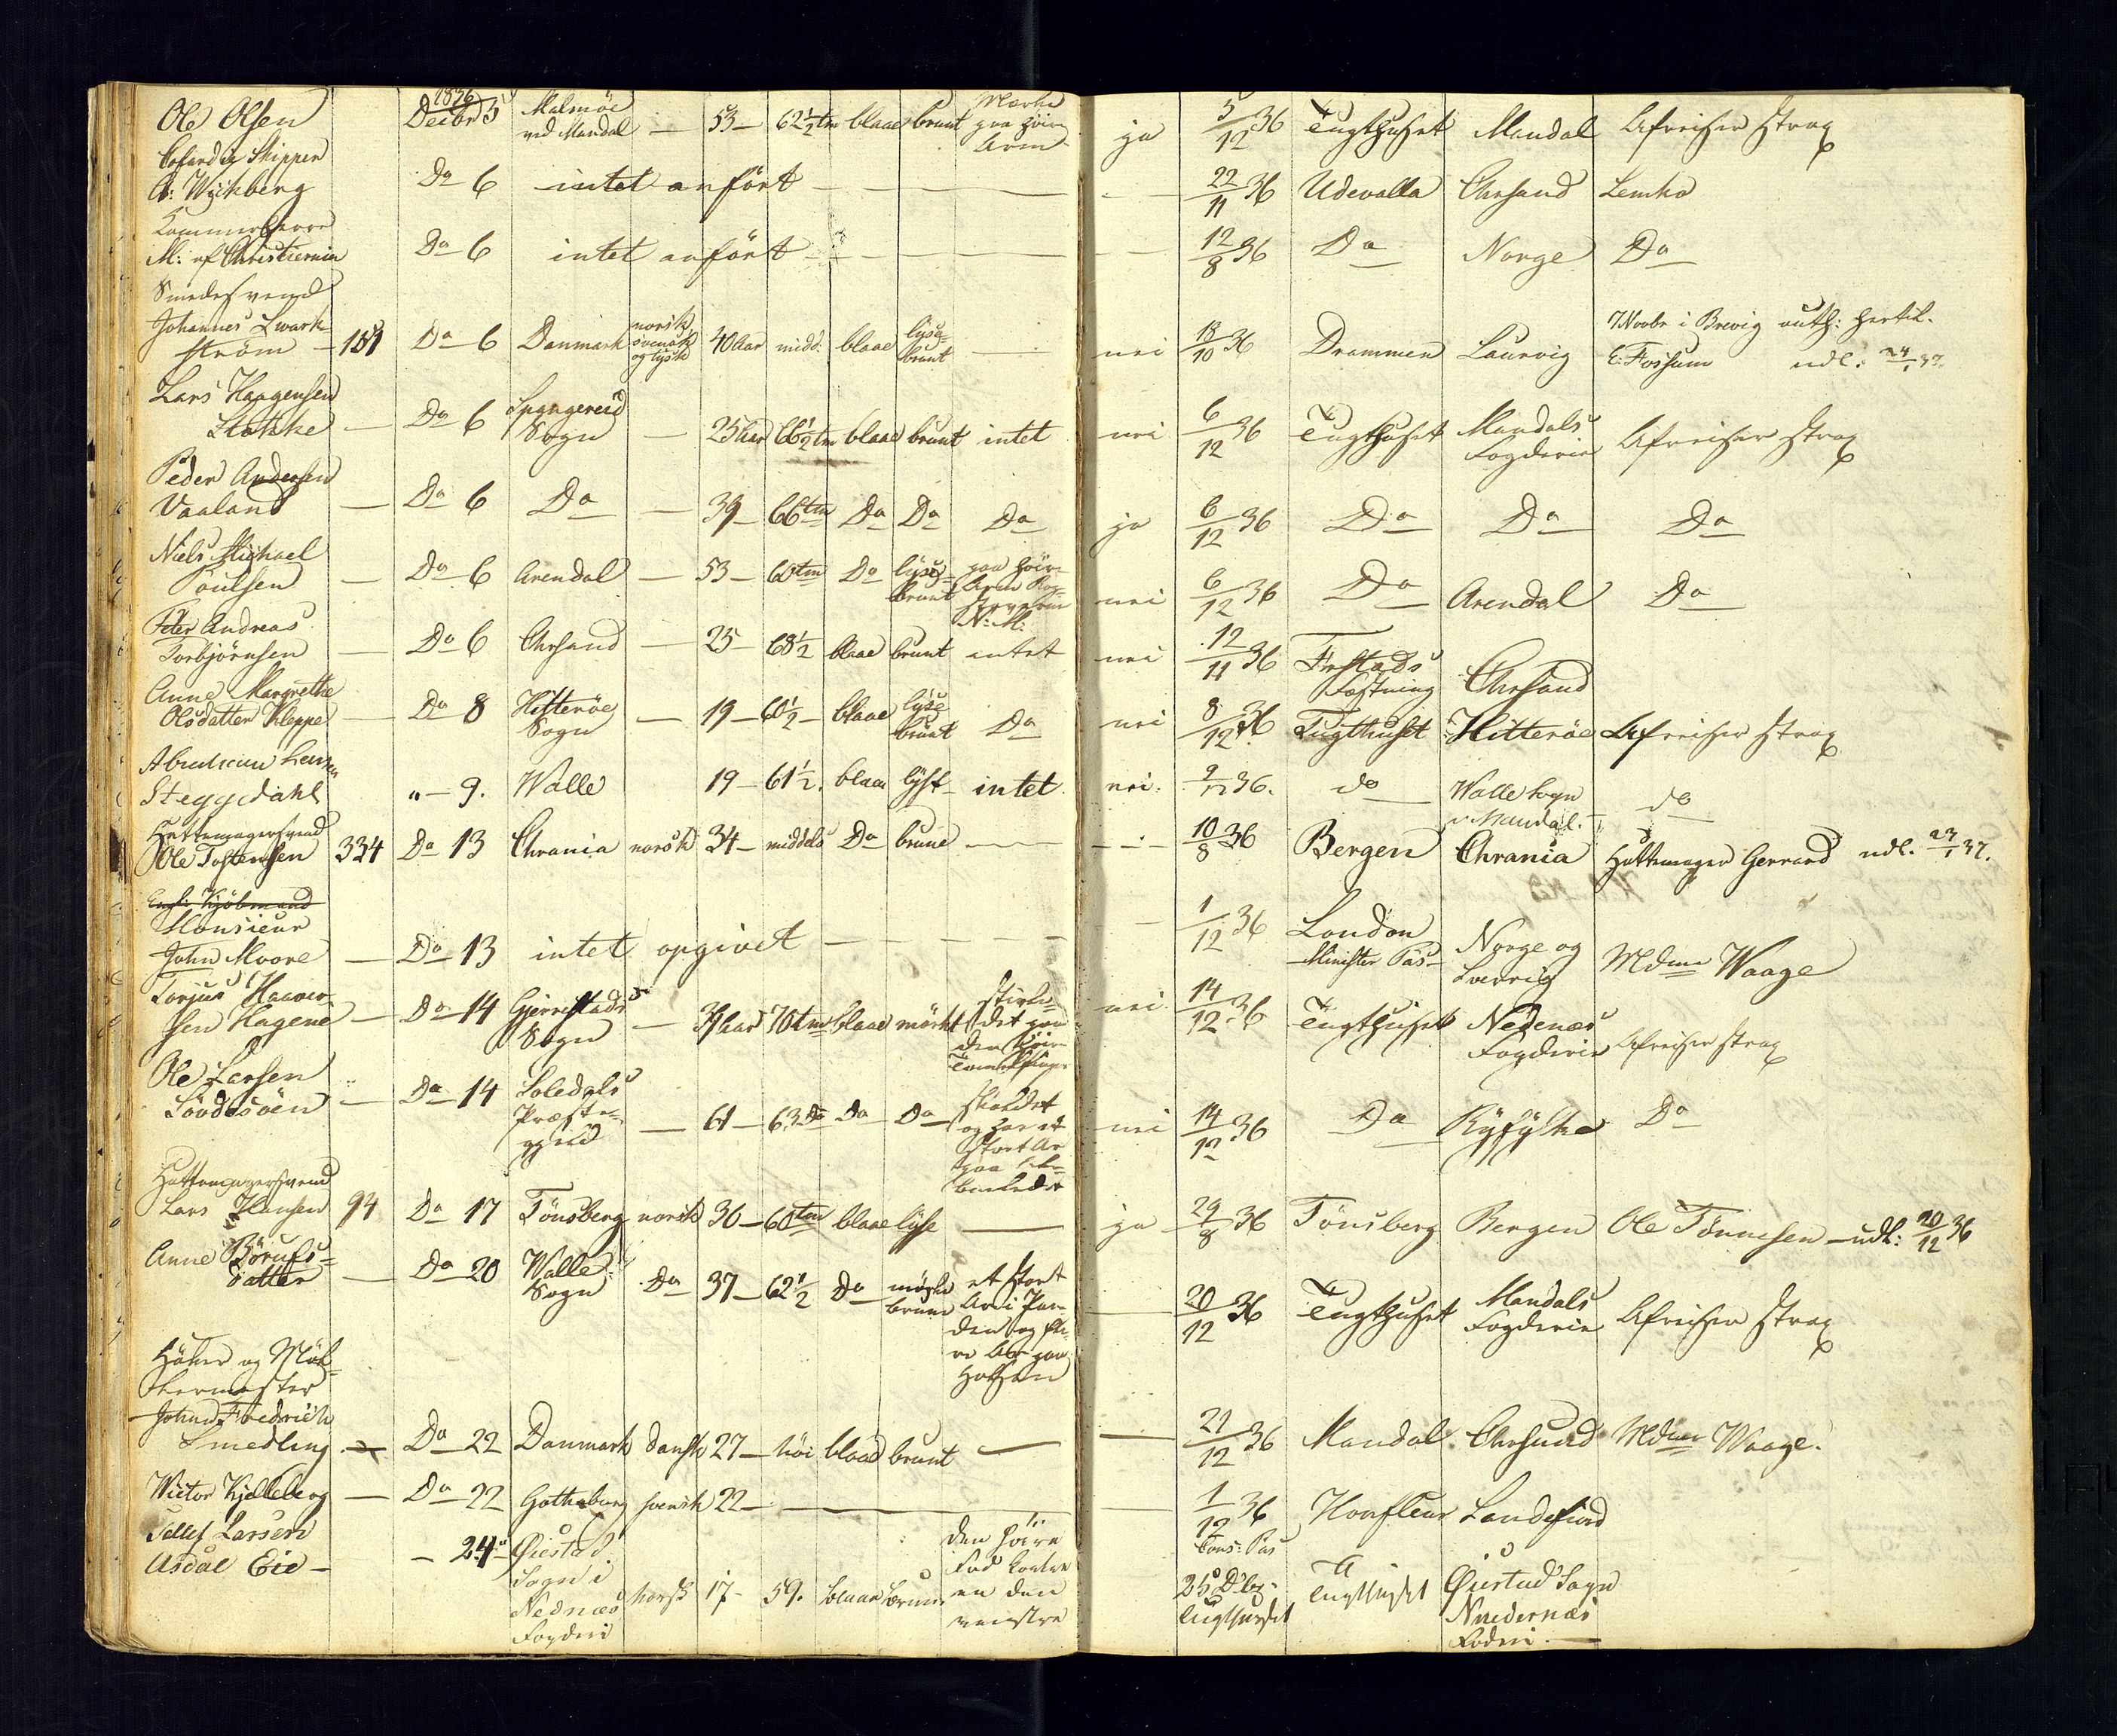 Ole Olsen 1836 Decbr 5 Malmöe ved Mandal — 53 — 62½ tm blaae brunt Mærke paa høire Arm ja 5/12 36 Tugthuset Mandal Afreiser strax
Skipper
Wichberg Do 6 intet anført — 22/11 36 Udevalla Chrsand Lemke
Kammerherre
M: af Christiernin Do 6 intet anført — 12/8 36 Do Norge Do
Smedesvend
Johannes Qwarn-
ström — 151 Do 6 Danmark norsk svensk og tysk 40 Aar midd: blaae lyse-brunt — nei 18/10 36 Drammen Laurvig 7 Novbr i Brevig auth: hertil. E: Fossum udl: 24/1 37.
Lars Haagensen
Stokke — Do 6 Spangereid Sogn — 25 Aar 66½ tm blaae brunt intet nei 6/12 36 Tugthuset Mandals Fogderie Afreiser strax
Peder Andersen
Vaaland — Do 6 Do — 39 — 66 tm Do Do Do ja 6/12 36 Do Do Do
Niels Michael
Poulsen — Do 6 Arendal — 53 — 60 tm Do lyse-brunt paa høire Arm N: M: nei 6/12 36 Do Arendal Do
Peter Andreas
Torbjörnsen — Do 6 Chrsand — 25 — 68½ blaae brunt intet nei 12/11 36 Frstads Fæstning Chrsand
Anne Margrethe
Olsdatter Kleppe — Do 8 Hitteröe Sogn — 19 — 60½ — blaae lyse brunt Do nei 8/12 36 Tugthuset Hitteröe Afreiser strax
Abraham Larsen
Steggedahl " — 9. Walle 19 — 61½. blaae lyst intet nei. 9/12 36. do Walle Sogn v. Mandal. do
Hattemagersvend
Ole Tostensen 334 Do 13 Chrania norsk 34 — middels Do brune — 10/8 36 Bergen Chrania Hattemager Gerrard udl. 23/1 37.
Engl: Kjöbmand
Monsieur
John Moore — Do 13 intet opgivet — 1/12 36 London Minister Pas Norge og Sverrig Mdme Waage
Torjus Haaver-
sen Hagene — Do 14 Gjerrestads Sogn — 39 aar 70 tm blaae mörkt nei 14/12 36 Tugthuset Nedenæs Fogderie Afreiser strax
Ole Larsen
— Do 14 Soledals Præstegjeld — 61 — 63 Do Do Do skaldet og har et stort Ar paa nei 14/12 36 Do Ryfylke Do
Hattemagersvend
Lars Hansen 94 Do 17 Tönsberg norsk 36 — 68 tm blaae lyse — ja 29/8 36 Tönsberg Bergen Ole Tönnesen — udl: 20/12 36
Anne Börufs-
datter — Do 20 Walle Sogn Do 37 — 62½ Do mörke brune et stort Ar i Panden og flere Ar paa Halsen — 20/12 36 Tugthuset Mandals Fogderie Afreiser strax
Höker og
Johan Friedrich
Smedling — Do 22 Danmark dansk 27 — höi blaae brunt — 21/12 36 Mandal Chrsand Mdme Waage.
Victor Kjelleberg — Do 22 Gotheborg svensk 22 — 1/12 36 Cons: Pas Honfleur Sandefiord
Tellef Larsen
Asdal Eie — — 24 Øiestad Sogn i Nednæs Fogderi norsk 17 — 59. blaae brune den høire Fod kortere en den venstre 25 Dbr. Tugthuset Tugthuset Øiestad Sogn Nedernæs Foderi. —